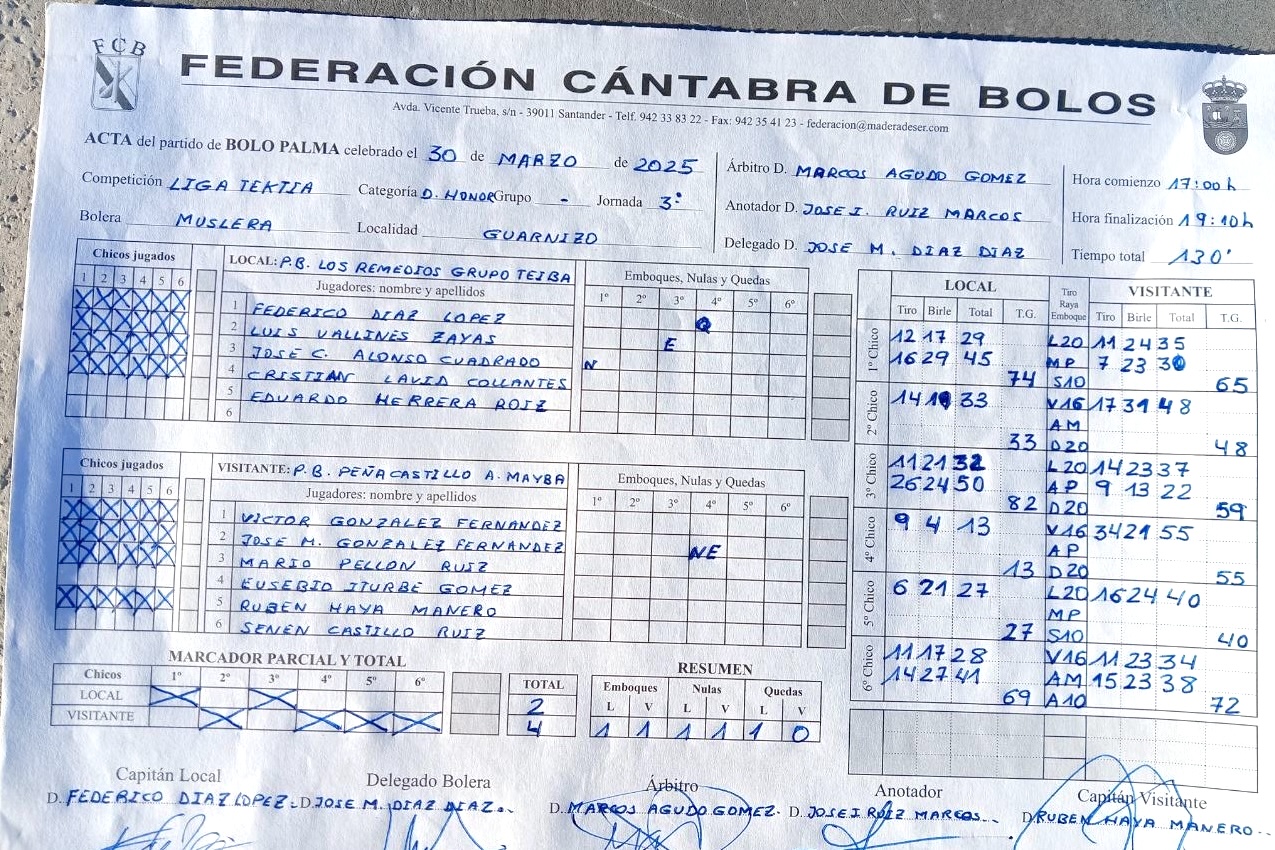 FCB
FEDERACIÓN CÁNTABRA DE BOLOS
Avda. Vicente Trueba, s/n - 39011 Santander - Telf. 942 33 83 22 - Fax: 942 35 41 23 - federacion@maderadeser.com
ACTA del partido de BOLO PALMA celebrado el 30 de MARZO de 2025
Competición LIGA TEKTIA Categoría D. HONOR Grupo - Jornada 3ª
Bolera MUSLERA Localidad GUARNIZO
Árbitro D. MARCOS AGUDO GOMEZ
Anotador D. JOSE I. RUIZ MARCOS
Delegado D. JOSE M. DIAZ DIAZ
Hora comienzo 17:00 h
Hora finalización 19:10h
Tiempo total 130'
Chicos jugados
1 2 3 4 5 6
LOCAL: P.B. LOS REMEDIOS GRUPO TEIBA
Jugadores: nombre y apellidos
1 FEDERICO DIAZ LOPEZ
2 LUIS VALLINES ZAYAS
3 JOSE C. ALONSO CUADRADO
4 CRISTIAN LAVID COLLANTES
5 EDUARDO HERRERA ROIZ
6
Emboques, Nulas y Quedas
1º 2º 3º 4º 5º 6º
Q
E
N
Chicos jugados
1 2 3 4 5 6
VISITANTE: P.B. PEÑACASTILLO A. MAYBA
Jugadores: nombre y apellidos
1 VICTOR GONZALEZ FERNANDEZ
2 JOSE M. GONZALEZ FERNANDEZ
3 MARIO PELLON RUIZ
4 EUSEBIO ITURBE GOMEZ
5 RUBEN HAYA MANERO
6 SENEN CASTILLO RUIZ
Emboques, Nulas y Quedas
1º 2º 3º 4º 5º 6º
NE
LOCAL Tiro Raya Emboque VISITANTE
Tiro Birle Total T.G. Tiro Birle Total T.G.
1º Chico
12 17 29 L20 11 24 35
16 29 45 MP 7 23 30
74 S10 65
2º Chico
14 19 33 V16 17 31 48
AM
33 D20 48
3º Chico
11 21 32 L20 14 23 37
26 24 50 AP 9 13 22
82 D20 59
4º Chico
9 4 13 V16 34 21 55
AP
13 D20 55
5º Chico
6 21 27 L20 16 24 40
MP
27 S10 40
6º Chico
11 17 28 V16 11 23 34
14 27 41 AM 15 23 38
69 A10 72
MARCADOR PARCIAL Y TOTAL
Chicos 1º 2º 3º 4º 5º 6º TOTAL
LOCAL 2
VISITANTE 4
RESUMEN
Emboques Nulas Quedas
L V L V L V
1 1 1 1 1 0
Capitán Local Delegado Bolera Árbitro Anotador Capitán Visitante
D. FEDERICO DIAZ LOPEZ. D. JOSE M. DIAZ DIAZ. D. MARCOS AGUDO GOMEZ. D. JOSE I RUIZ MARCOS. D. RUBEN HAYA MANERO.